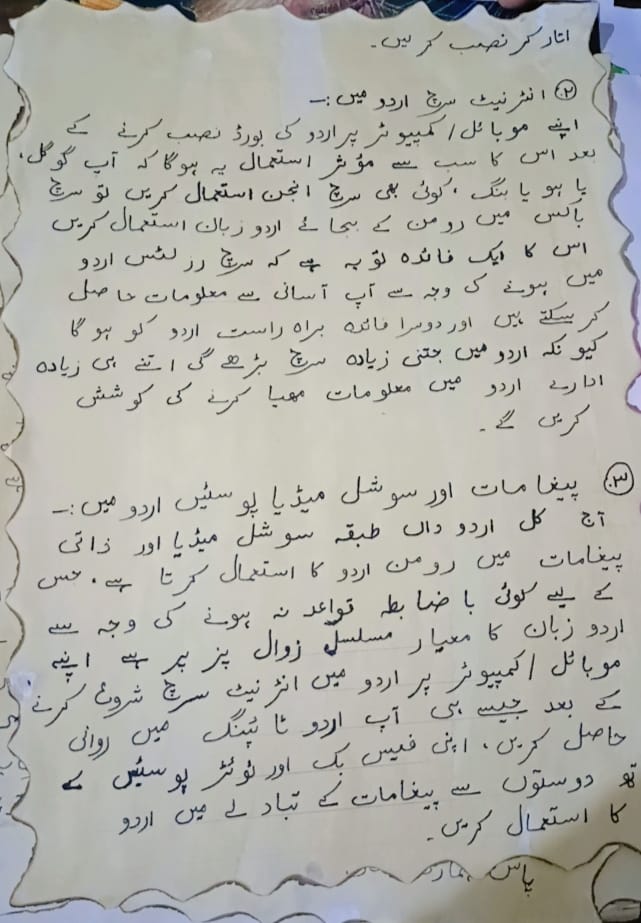 اتار کر نصب کریں۔
۲۔ انٹرنیٹ سرچ اردو میں:۔
اپنے موبائل/کمپیوٹر پر اردو کی بورڈ نصب کرنے کے
بعد اس کا سب سے مؤثر استعمال یہ ہوگا کہ آپ گوگل،
یا ہو یا بنگ، کوئی بھی سرچ انجن استعمال کریں تو سرچ
باکس میں رومن کے بجائے اردو زبان استعمال کریں
اس کا ایک فائدہ تو یہ ہے کہ سرچ رزلٹس اردو
میں ہونے کی وجہ سے آپ آسانی سے معلومات حاصل
کر سکتے ہیں اور دوسرا فائدہ براہ راست اردو کو ہو گا
کیونکہ اردو میں جتنی زیادہ سرچ بڑھے گی اتنے ہی زیادہ
ادارے اردو میں معلومات مہیا کرنے کی کوشش
کریں گے۔
۳۔ پیغامات اور سوشل میڈیا پوسٹیں اردو میں:۔
آج کل اردو داں طبقہ سوشل میڈیا اور ذاتی
پیغامات میں رومن اردو کا استعمال کرتا ہے، جس
کے لیے کوئی باضابطہ قواعد نہ ہونے کی وجہ سے
اردو زبان کا معیار مسلسل زوال پزیر ہے اپنے
موبائل/کمپیوٹر پر اردو میں انٹرنیٹ سرچ شروع کرنے
کے بعد جیسے ہی آپ اردو ٹائپنگ میں روانی
حاصل کریں، اپنی فیس بک اور ٹوئٹر پوسٹیں کے
تو دوستوں سے پیغامات کے تبادلے میں اردو
کا استعمال کریں۔
پاس ہمار